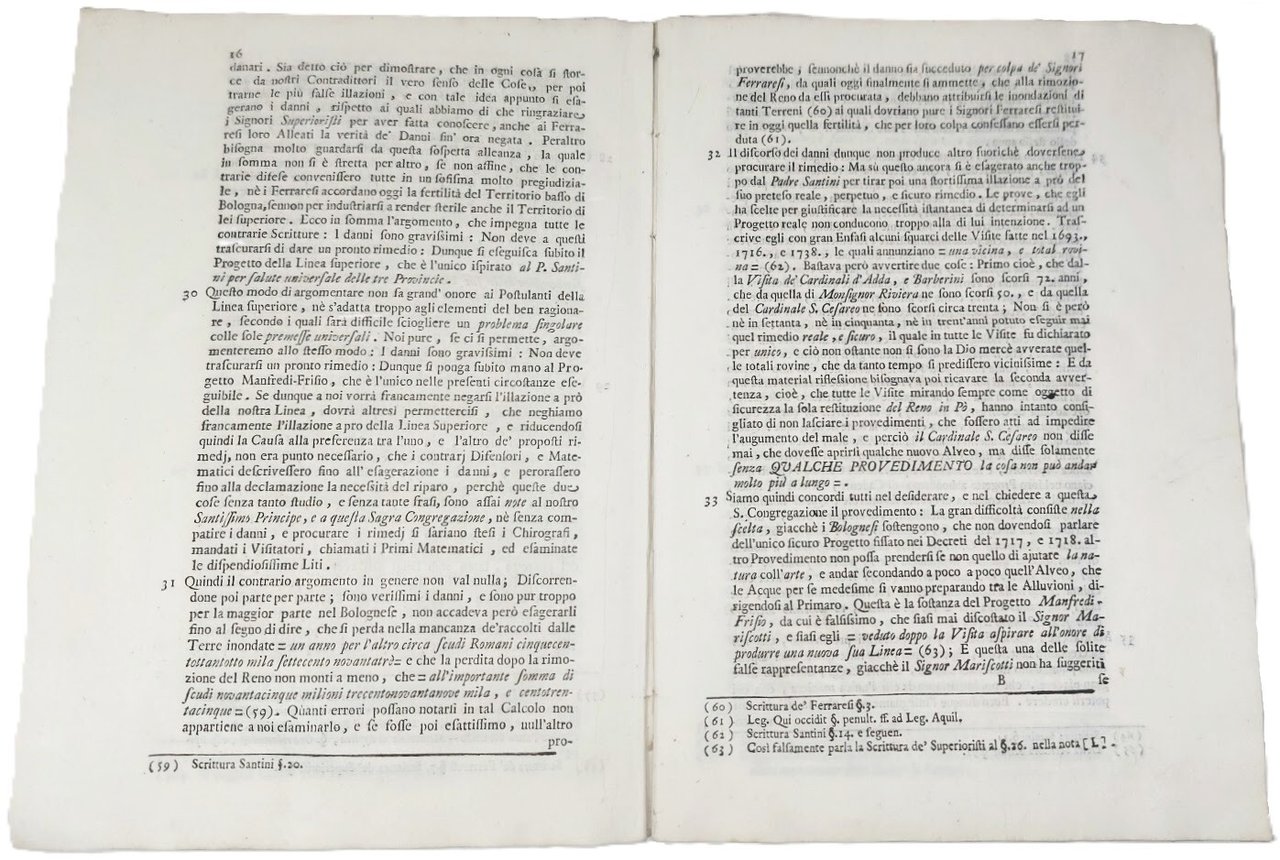 16
danari. Sia detto ciò per dimoſtrare, che in ogni coſa ſi ſtor-
ce da noſtri Contradittori il vero ſenſo delle Coſe, per poi
trarne le più falſe illazioni, e con tale idea appunto ſi eſa-
gerano i danni, riſpetto ai quali abbiamo di che ringraziare
i Signori Superioriſti per aver fatta conoſcere, anche ai Ferra-
reſi loro Alleati la verità de' Danni ſin' ora negata. Peraltro
biſogna molto guardarſi da queſta ſoſpetta alleanza, la quale
in ſomma non ſi è ſtretta per altro, ſe non affine, che le con-
trarie difeſe conveniſſero tutte in un ſofiſma molto pregiudizia-
le, nè i Ferrareſi accordano oggi la fertilità del Territorio baſſo di
Bologna, ſennon per induſtriarſi a render ſterile anche il Territorio di
lei ſuperiore. Ecco in ſomma l'argomento, che impegna tutte le
contrarie Scritture: I danni ſono graviſſimi: Non deve a queſti
traſcurarſi di dare un pronto rimedio: Dunque ſi eſeguiſca ſubito il
Progetto della Linea ſuperiore, che è l'unico iſpirato al P. Santi-
ni per ſalute univerſale delle tre Provincie.
30 Queſto modo di argomentare non fa grand' onore ai Poſtulanti della
Linea ſuperiore, nè s'adatta troppo agli elementi del ben ragiona-
re, ſecondo i quali ſarà difficile ſciogliere un problema ſingolare
colle ſole premeſſe univerſali. Noi pure, ſe ci ſi permette, argo-
menteremo allo ſteſſo modo: I danni ſono graviſſimi: Non deve
traſcurarſi un pronto rimedio: Dunque ſi ponga ſubito mano al Pro-
getto Manfredi-Friſio, che è l'unico nelle preſenti circoſtanze eſe-
guibile. Se dunque a noi vorrà francamente negarſi l'illazione a prò
della noſtra Linea, dovrà altresì permetterciſi, che neghiamo
francamente l'illazione a pro della Linea Superiore, e riducendoſi
quindi la Cauſa alla preferenza tra l'uno, e l'altro de' propoſti ri-
medj, non era punto neceſſario, che i contrarj Difenſori, e Mate-
matici deſcriveſſero fino all' eſagerazione i danni, e peroraſſero
fino alla declamazione la neceſſità del riparo, perchè queſte due
coſe ſenza tanto ſtudio, e ſenza tante fraſi, ſono aſſai note al noſtro
Santiſſimo Principe, e a queſta Sagra Congregazione, nè ſenza com-
patire i danni, e procurare i rimedj ſi ſariano ſteſi i Chirografi,
mandati i Viſitatori, chiamati i Primi Matematici, ed eſaminate
le diſpendioſiſſime Liti.
31 Quindi il contrario argomento in genere non val nulla; Diſcorren-
done poi parte per parte; ſono veriſſimi i danni, e ſono pur troppo
per la maggior parte nel Bologneſe, non accadeva però eſagerarli
fino al ſegno di dire, che ſi perda nella mancanza de'raccolti dalle
Terre inondate = un anno per l'altro circa ſcudi Romani cinquecen-
tottantotto mila ſettecento novantatrè= e che la perdita dopo la rimo-
zione del Reno non monti a meno, che = all'importante ſomma di
ſcudi novantacinque milioni trecentonovantanove mila, e centotren-
tacinque = (59). Quanti errori poſſano notarſi in tal Calcolo non
appartiene a noi eſaminarlo, e ſe foſſe poi eſattiſſimo, null'altro
pro-
(59) Scrittura Santini §. 20.
17
proverebbe, ſennonchè il danno ſia ſucceduto per colpa de' Signori
Ferrareſi, da quali oggi finalmente ſi ammette, che alla rimozio-
ne del Reno da eſſi procurata, debbano attribuirſi le inondazioni di
tanti Terreni (60) ai quali dovriano pure i Signori Ferrareſi reſtitui-
re in oggi quella fertilità, che per loro colpa confeſſano eſſerſi per-
duta (61).
32 Il diſcorſo dei danni dunque non produce altro fuorichè doverſene
procurare il rimedio: Ma sù queſto ancora ſi è eſagerato anche trop-
po dal Padre Santini per tirar poi una ſtortiſſima illazione a prò del
ſuo preteſo reale, perpetuo, e ſicuro rimedio. Le prove, che egli
ha ſcelte per giuſtificare la neceſſità iſtantanea di determinarſi ad un
Progetto reale non conducono troppo alla di lui intenzione. Traſ-
crive egli con gran Enfaſi alcuni ſquarci delle Viſite fatte nel 1693.,
1716., e 1738., le quali annunziano = una vicina, e total rovi-
na = (62). Baſtava però avvertire due coſe: Primo cioè, che dal-
la Viſita de' Cardinali d'Adda, e Barberini ſono ſcorſi 72. anni,
che da quella di Monſignor Riviera ne ſono ſcorſi 50., e da quella
del Cardinale S. Ceſareo ne ſono ſcorſi circa trenta; Non ſi è però
nè in ſettanta, nè in cinquanta, nè in trent'anni potuto eſeguir mai
quel rimedio reale, e ſicuro, il quale in tutte le Viſite fu dichiarato
per unico, e ciò non oſtante non ſi ſono la Dio mercè avverate quel-
le totali rovine, che da tanto tempo ſi prediſſero viciniſſime: E da
queſta material rifleſſione biſognava poi ricavare la ſeconda avver-
tenza, cioè, che tutte le Viſite mirando ſempre come oggetto di
ſicurezza la ſola reſtituzione del Reno in Pò, hanno intanto conſi-
gliato di non laſciare i provedimenti, che foſſero atti ad impedire
l'augumento del male, e perciò il Cardinale S. Ceſareo non diſſe
mai, che doveſſe aprirſi qualche nuovo Alveo, ma diſſe ſolamente
ſenza QUALCHE PROVEDIMENTO la coſa non può andar
molto più a lungo =.
33 Siamo quindi concordi tutti nel deſiderare, e nel chiedere a queſta
S. Congregazione il provedimento: La gran difficoltà conſiſte nella
ſcelta, giacchè i Bologneſi ſoſtengono, che non dovendoſi parlare
dell'unico ſicuro Progetto fiſſato nei Decreti del 1717, e 1718. al-
tro Provedimento non poſſa prenderſi ſe non quello di ajutare la na-
tura coll'arte, e andar ſecondando a poco a poco quell'Alveo, che
le Acque per ſe medeſime ſi vanno preparando tra le Alluvioni, di-
rigendoſi al Primaro. Queſta è la ſoſtanza del Progetto Manfredi-
Friſio, da cui è falſiſſimo, che ſiaſi mai diſcoſtato il Signor Ma-
riſcotti, e ſiaſi egli = veduto doppo la Viſita aſpirare all'onore di
produrre una nuova ſua Linea= (63); E queſta una delle ſolite
falſe rappreſentanze, giacchè il Signor Mariſcotti non ha ſuggeriti
B ſe
(60) Scrittura de' Ferrareſi §. 3.
(61) Leg. Qui occidit §. penult. ff. ad Leg. Aquil.
(62) Scrittura Santini §. 14. e ſeguen.
(63) Così falſamente parla la Scrittura de' Superioriſti al §. 26. nella nota [L].